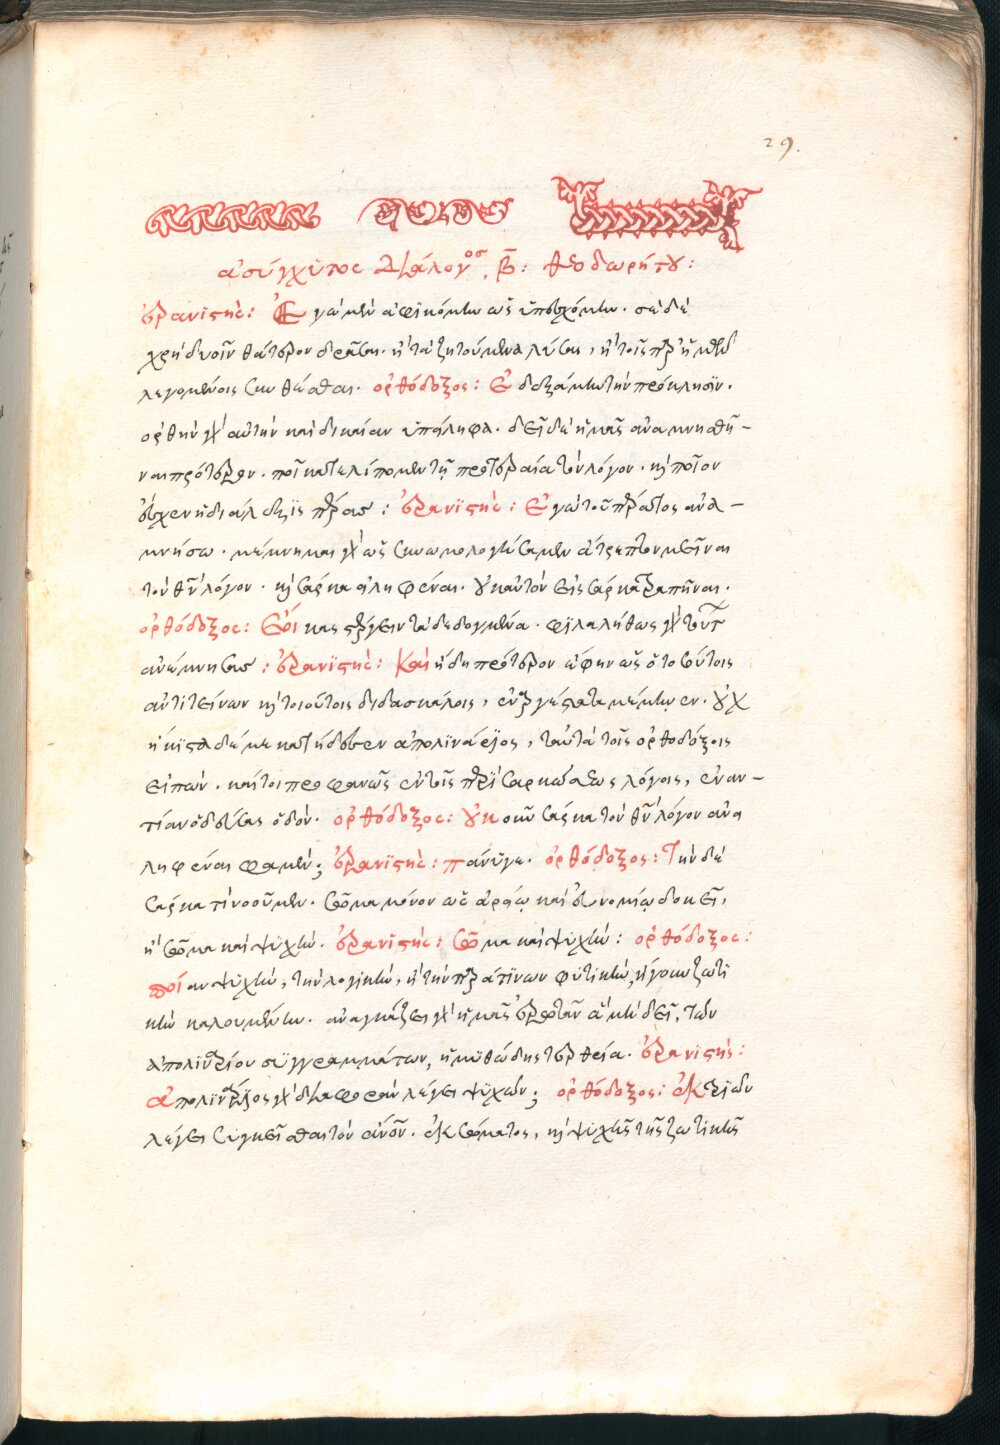 29.
ἀσύγχυτος διάλογος, β: θεοδωρήτου:
ἐρανιστής: Ἐγὼ μὲν ἀφικόμην ὡς ὑπεσχόμην. σὲ δὲ
χρὴ δυοῖν θάτερον δρᾶσαι. ἢ τὰ ζητούμενα λῦσαι, ἢ τοῖς παρ' ἡμῶν
λεγομένοις συνθέσθαι. ὀρθόδοξος: Ἐδεξάμην τὴν πρόκλησιν.
ὀρθὴν γὰρ αὐτὴν καὶ δικαίαν ὑπείληφα. δεῖ δὲ ἡμᾶς ἀναμνησθῆ-
ναι πρότερον. ποῖ κατελίπομεν τῇ προτεραίᾳ τὸν λόγον. καὶ ποῖον
ἔσχεν ἡ διάλεξις πέρας: ἐρανιστής: Ἐγὼ τοῦ πέρατος ἀνα-
μνήσω. μέμνημαι γὰρ ὡς συνωμολογήσαμεν ἄτρεπτον εἶναι
τὸν θν λόγον. καὶ σάρκα εἰληφέναι. οὐκ αὐτὸν εἰς σάρκα τραπῆναι.
ὀρθόδοξος: Ἔοικας στέργειν τὰ δεδογμένα. φιλαλήθως γὰρ τούτων
ἀνέμνησας: ἐρανιστής: Καὶ ἤδη πρότερον ἔφην ὡς ὁ τοσούτοις
ἀντιτείνων καὶ τοιούτοις διδασκάλοις, ἐναργέστατα μέμηνεν. οὐχ
ἥκιστα δέ με κατῄδεσεν ἀπολινάριος, ταὐτὰ τοῖς ὀρθοδόξοις
εἰπών. καίτοι προφανῶς ἐν τοῖς περὶ σαρκώσεως λόγοις, ἐναν-
τίαν ὁδεύσας ὁδόν. ὀρθόδοξος: Οὐκοῦν σάρκα τὸν θν λόγον ἀνει
ληφέναι φαμέν; ἐρανιστής: πάνυγε. ὀρθόδοξος: Τὴν δὲ
σάρκα τί νοοῦμεν. σῶμα μόνον ὡς ἀρείῳ καὶ εὐνομίῳ δοκεῖ,
ἢ σῶμα καὶ ψυχήν. ἐρανιστής: Σῶμα καὶ ψυχήν: ὀρθόδοξος:
ποίαν ψυχήν, τὴν λογικήν, ἢ τὴν παρά τινων φυτικήν, ἤγουν ζωτι
κὴν καλουμένην. ἀναγκάζει γὰρ ἡμᾶς ἐρωτᾶν ἃ μὴ δεῖ, τῶν
ἀπολιναρίου συγγραμμάτων, ἡ μυθώδης τερθεία. ἐρανιστής:
ἀπολινάριος γὰρ διαφορὰν λέγει ψυχῶν; ὀρθόδοξος: ἐκ τριῶν
λέγει συγκεῖσθαι τὸν ἀνον. ἐκ σώματος, καὶ ψυχῆς τῆς ζωτικῆς